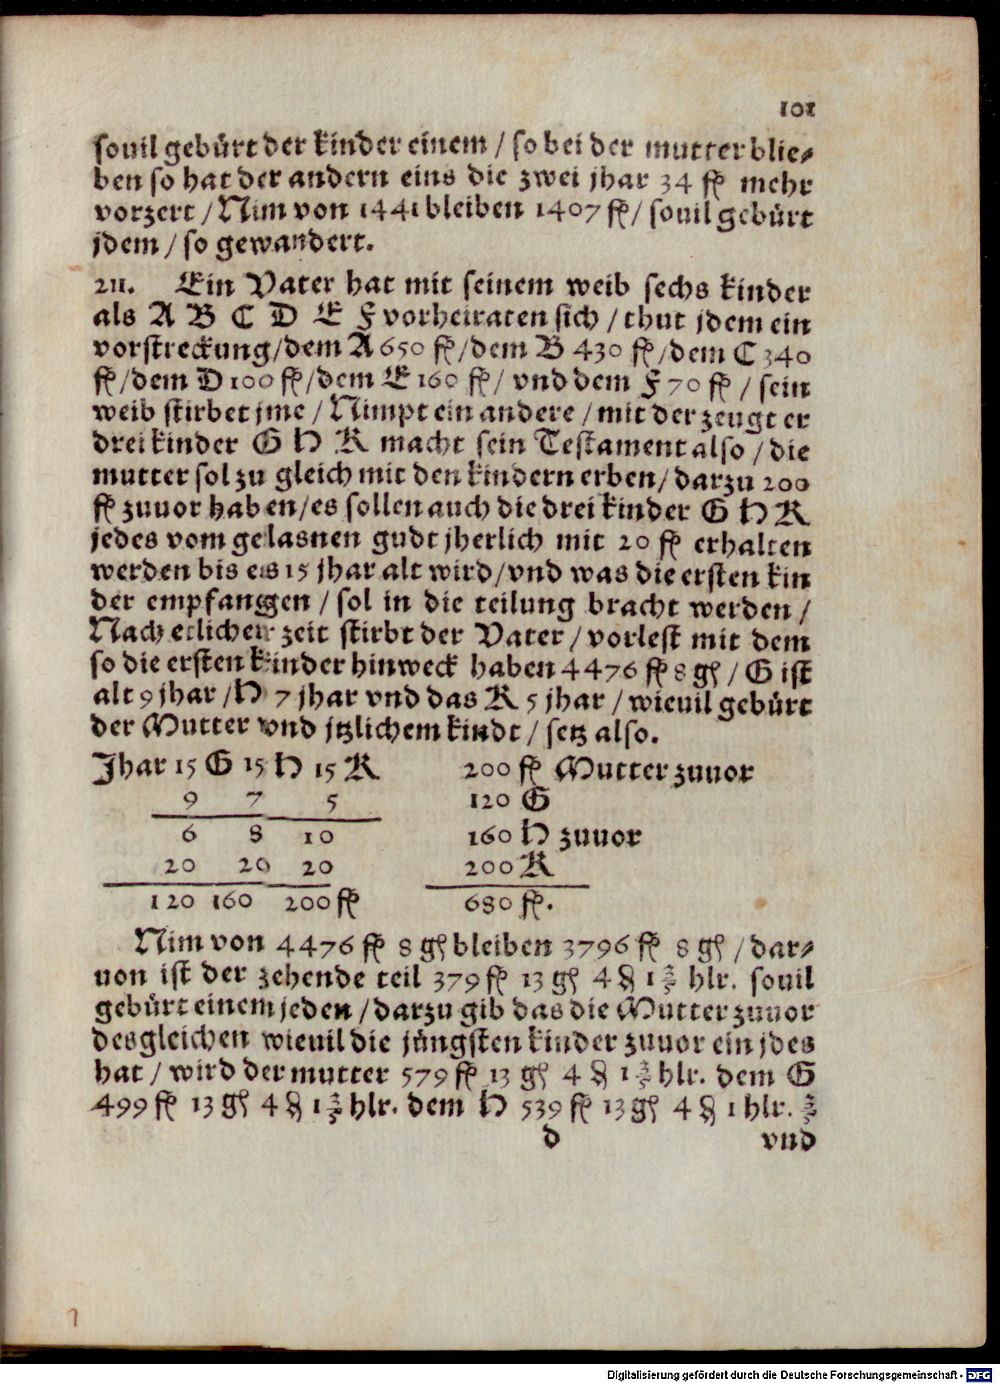 101
souil gebürt der kinder einem / so bei der mutter blie⸗
ben so hat der andern eins die zwei jhar 34 fl mehr
vorzert / Nim von 1441 bleiben 1407 fl / souil gebürt
jdem / so gewandert.
211. Ein Vater hat mit seinem weib sechs kinder
als A B C D E F vorheiraten sich / thut jdem ein
vorstreckung / dem A 650 fl / dem B 430 fl / dem C 340
fl / dem D 100 fl / dem E 160 fl / vnd dem F 70 fl / sein
weib stirbet jme / Nimpt ein andere / mit der zeugt er
drei kinder G H K macht sein Testament also / die
mutter sol zu gleich mit den kindern erben / darzu 200
fl zuuor haben / es sollen auch die drei kinder G H K
jedes vom gelasnen gudt jherlich mit 20 fl erhalten
werden bis es 15 jhar alt wird / vnd was die ersten kin
der empfangen / sol in die teilung bracht werden /
Nach etlicher zeit stirbt der Vater / vorlest mit dem
so die ersten kinder hinweck haben 4476 fl 8 gl / G ist
alt 9 jhar / H 7 jhar vnd das K 5 jhar / wieuil gebürt
der Mutter vnd jtzlichem kindt / setz also.
Jhar 15 G 15 H 15 K 200 fl Mutter zuuor
9 7 5 120 G
6 8 10 160 H zuuor
20 20 20 200 K
120 160 200 fl 680 fl.
Nim von 4476 fl 8 gl bleiben 3796 fl 8 gl / dar⸗
uon ist der zehende teil 379 fl 13 gl 4 ₰ 1 3/5 hlr. souil
gebürt einem jeden / darzu gib das die Mutter zuuor
desgleichen wieuil die jüngsten kinder zuuor ein jdes
hat / wird der mutter 579 fl 13 gl 4 ₰ 1 3/5 hlr. dem G
499 fl 13 gl 4 ₰ 1 3/5 hlr. dem H 539 fl 13 gl 4 ₰ 1 hlr. 3/5
d vnd
1
Digitalisierung gefördert durch die Deutsche Forschungsgemeinschaft - DFG